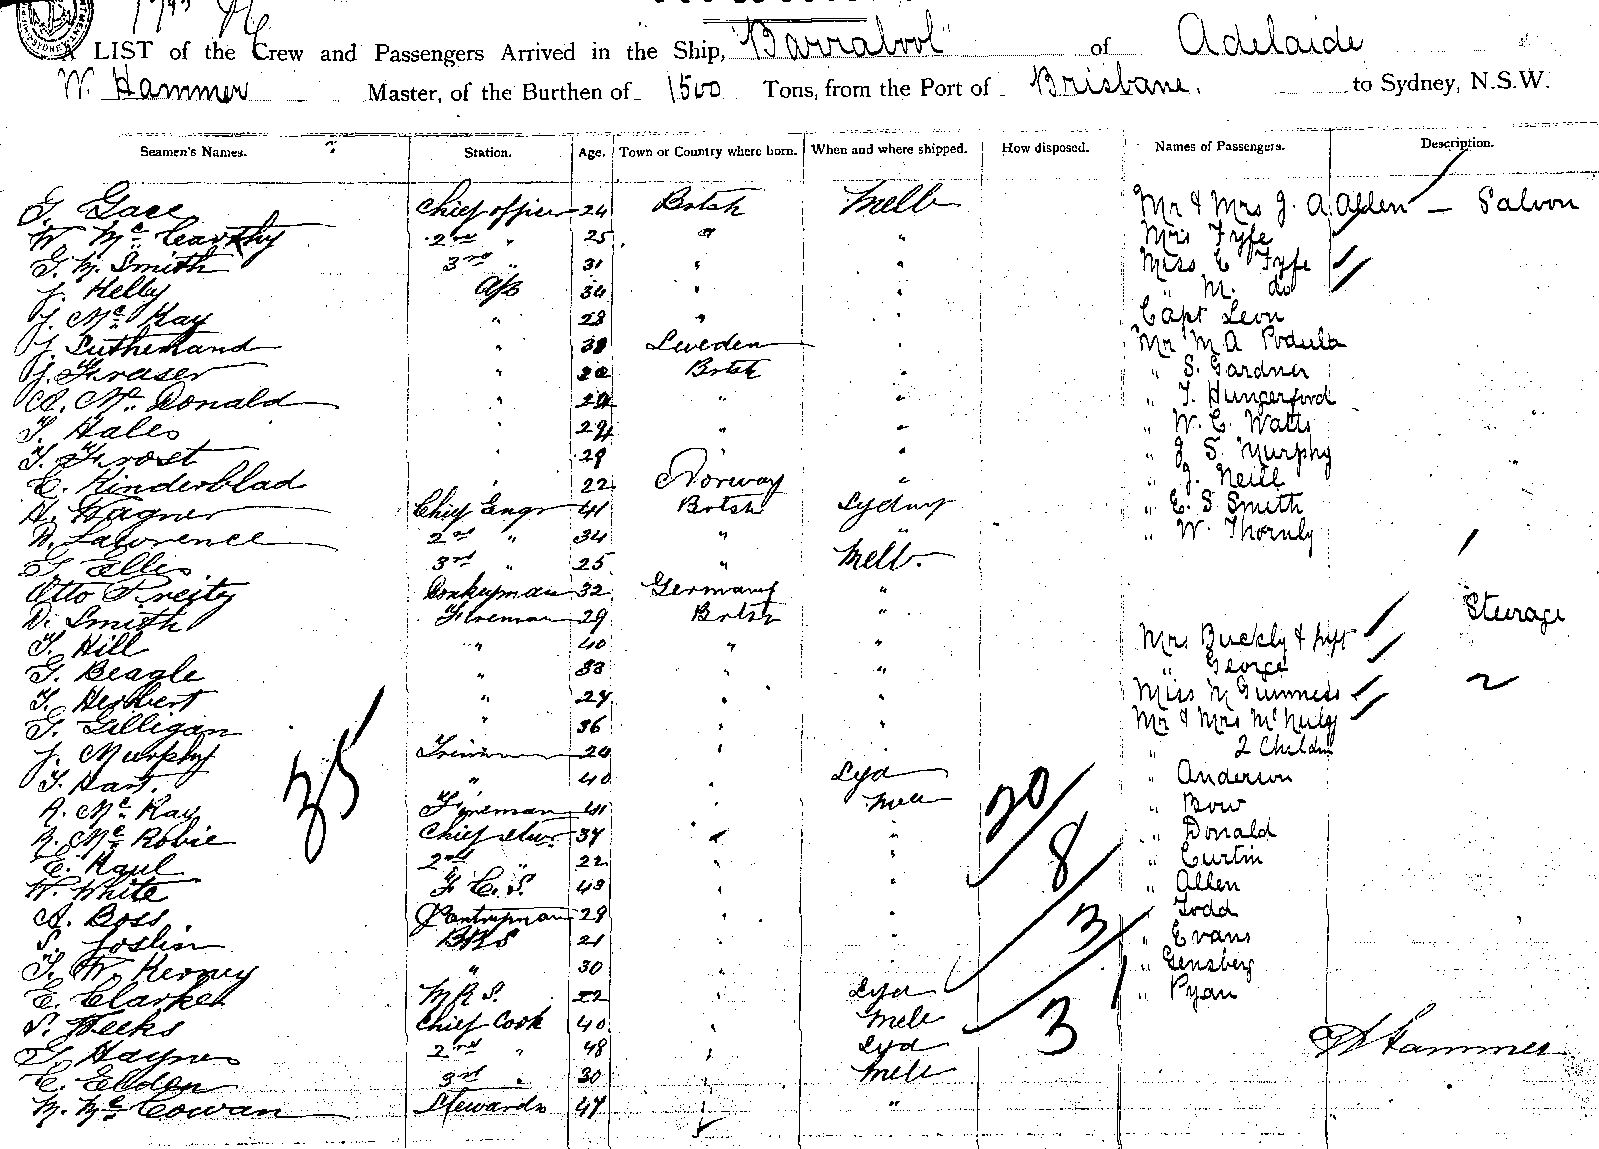 A LIST of the Crew and Passengers Arrived in the Ship, "Barrabool" of Adelaide
W. Hammer Master, of the Burthen of 1500 Tons, from the Port of Brisbane. to Sydney, N.S.W.
Seamen's Names. Station. Age. Town or Country where born. When and where shipped. How disposed. Names of Passengers. Description.
Chief officer 24 British Melb Mr & Mrs J. A. Alden — Saloon
W. McCarthy 2nd " 25 " " Mrs Fyfe
G. M. Smith 3rd " 31 " " Miss E Fyfe
J. Kelly A/B 34 " " " M. do
J. McKay " 28 " " Capt Leon
J. Sutherland " 38 Sweden " Mr M A
J. Fraser " 22 British " " S. Gardner
A. McDonald " 29 " " " T. Hungerford
T. Hales " 29 " " " W. E. Watts
T. Frost " 29 " " J. S. Murphy
E. Kinderblad " 22 Norway " " J. Neill
H. Wagner Chief Engr 41 British Sydney " E. S. Smith
D. Lawrence 2nd " 34 " " W. Thornly
G. Ellis 3rd " 25 " Melb.
Otto Donkeyman 32 Germany "
D. Smith Fireman 29 British " Steerage
T. Hill " 40 " " Mrs Buckly &
G. Beagle " 33 " " " George
T. Herbert " 27 " " Miss M Guinness 2
G. Gilligan " 36 " " Mr & Mrs
J. Murphy Trimmer 24 " " " 2 Children
T. Hart. " 40 Syd " Anderson
35
R. McKay Fireman 41 Melb 20 " Bow
R. McRobie Chief Stwr 37 " " " Donald
E. Kaul 2nd " 22 " " 8 " Curtin
W. White F. C. S. 49 " " " Allen
A. Boss. Pantryman 29 " " " Todd
S. Joslin BRS 21 " " 3 " Evans
T. W. Kerney " 30 " " " Gensberg
E. Clarke MRS. 22 Syd " Ryan
S. Weeks Chief Cook 40 " Melb 3
G. Haynes 2nd " 48 " Syd W Hammer
E. Elden 3rd " 30 " Melb
M. McCowan Stewards 47 " "